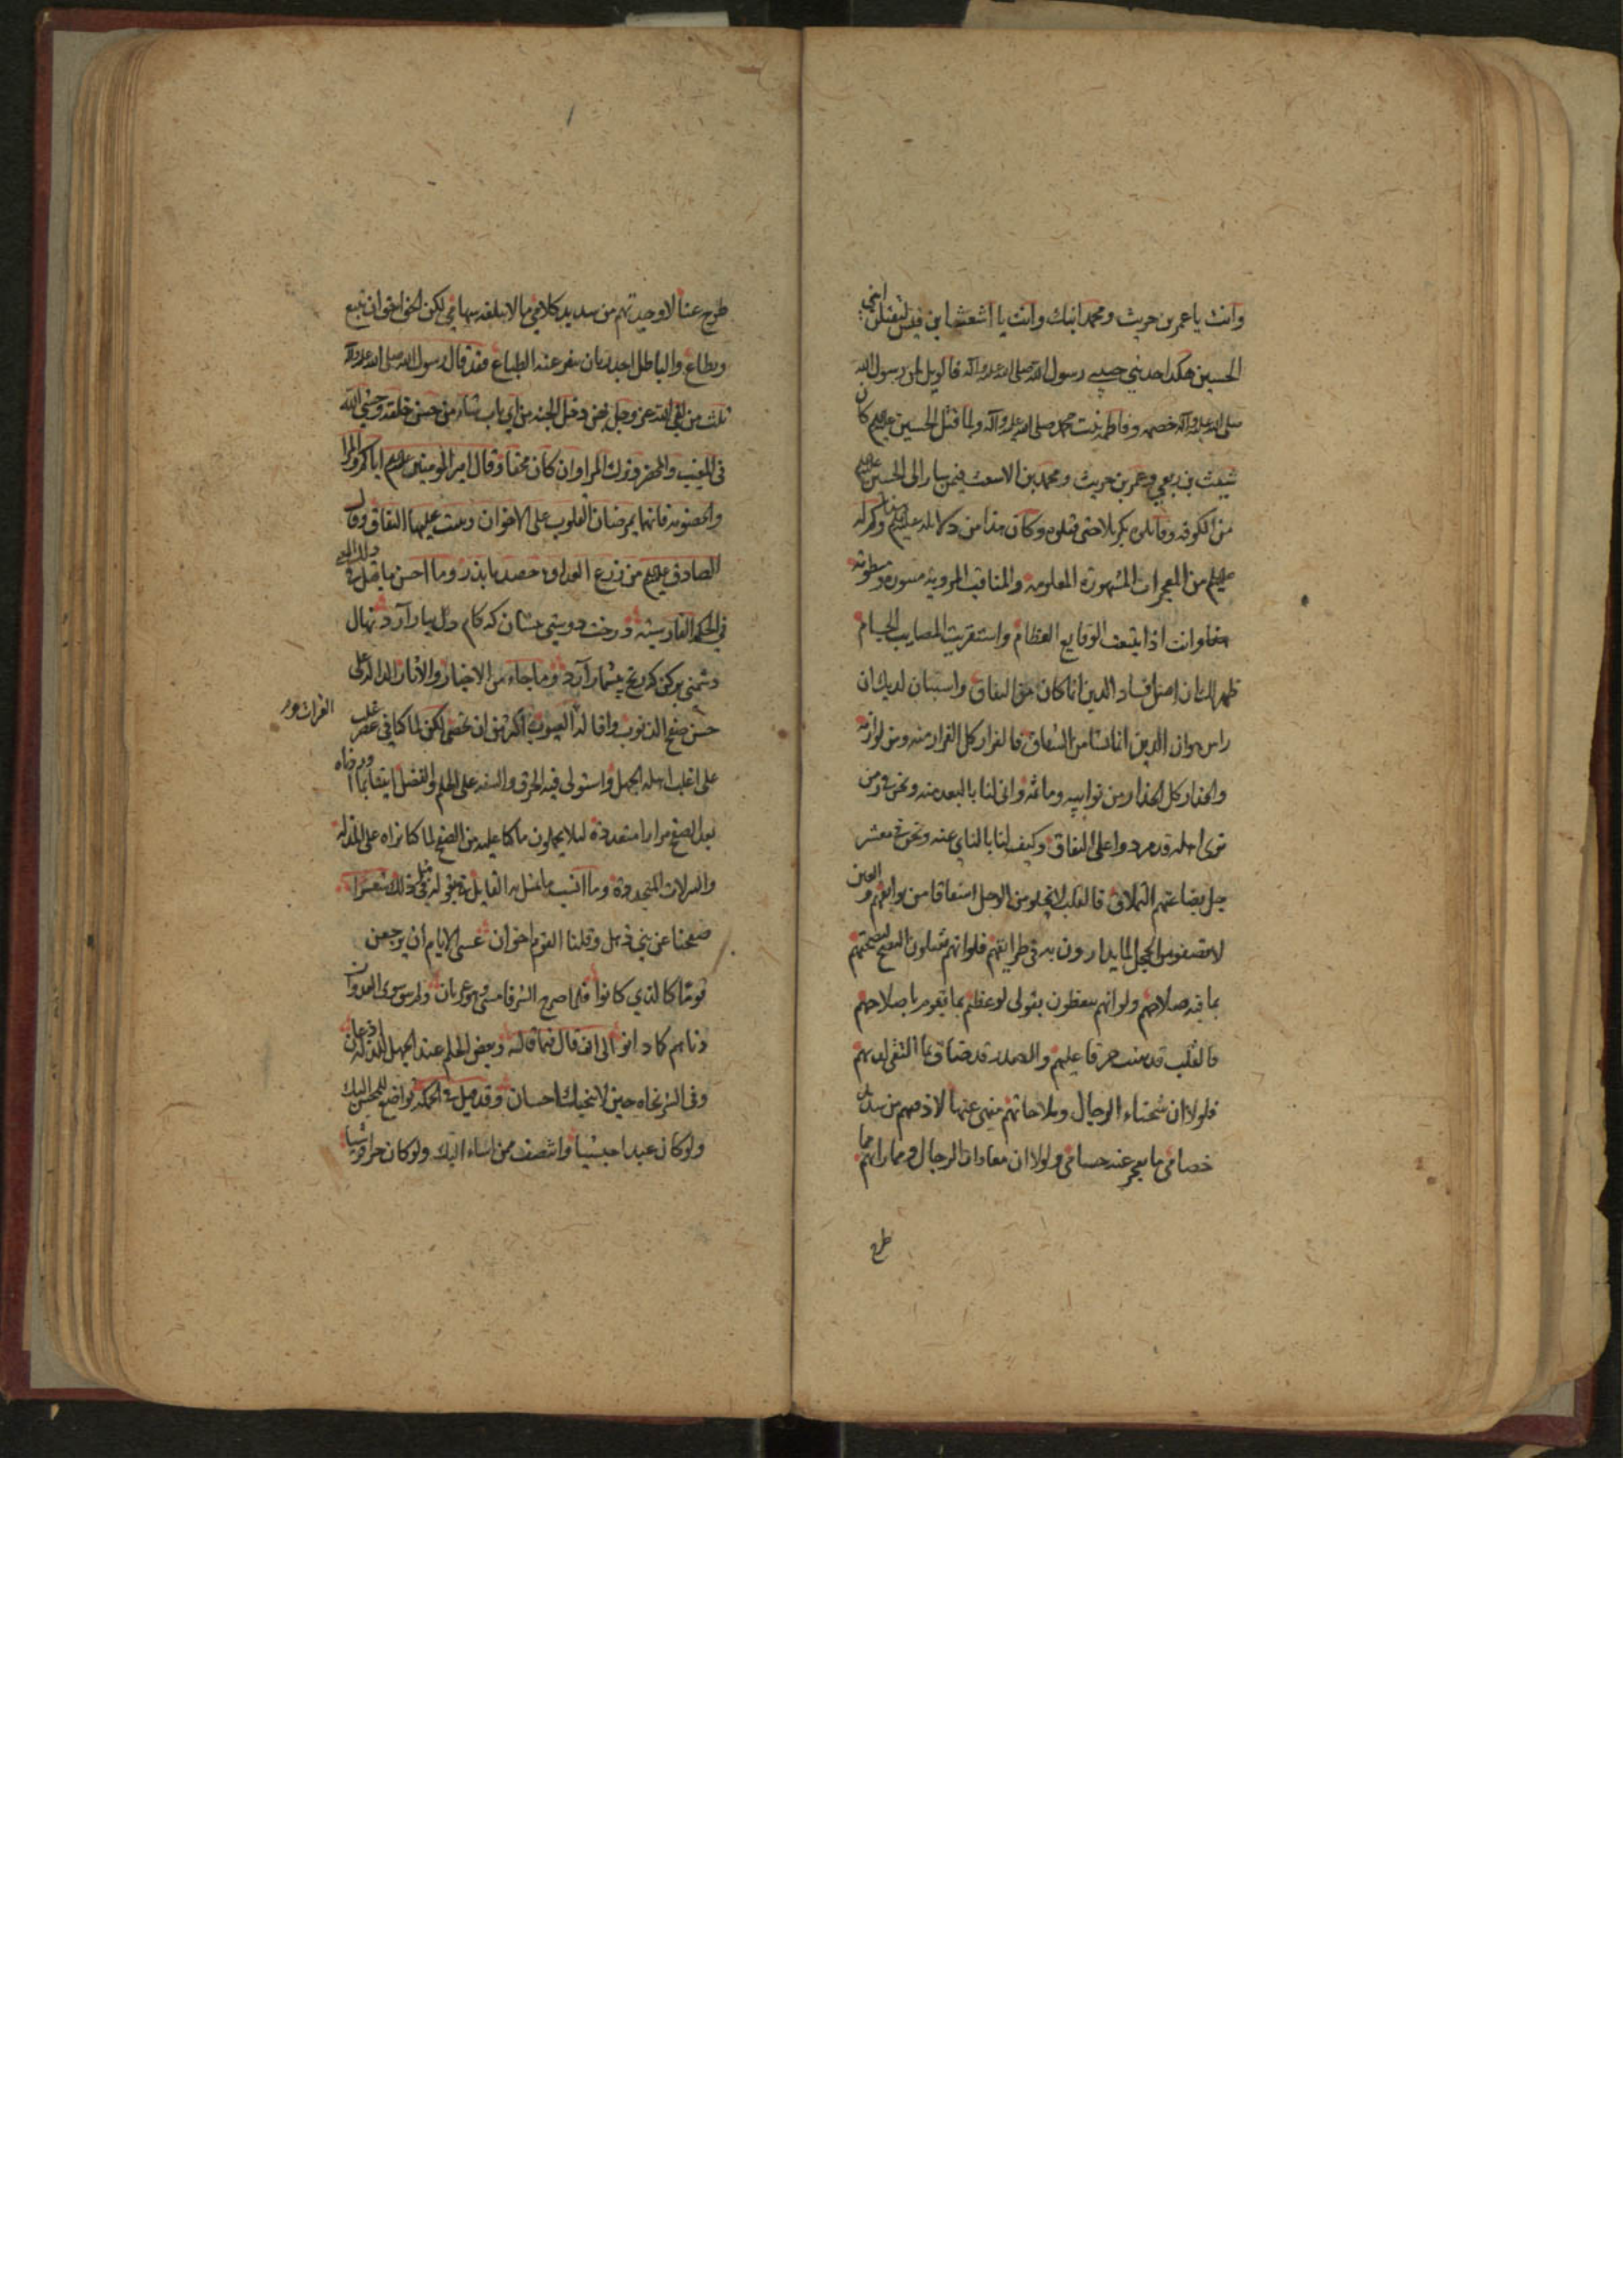 وانت يا عمر بن حريث ومحمد ابنك وانت يا اشعث بن قيس لتقتلن ابني
الحسين هكذا حدثني حبيبي رسول الله صلى الله عليه وآله فالويل لمن رسول الله
صلى الله عليه وآله خصمه وفاطمة بنت محمد صلى الله عليه وآله ولما قتل الحسين عليه السلام كان
شيث بن ربعي وعمر بن حريث ومحمد بن الاشعث فيمن سار الى الحسين عليه السلام
من الكوفه وقاتلوه بكربلا حتى قتلوه وكان هذا من دلائله عليه السلام وكم له
عليه السلام من المعجزات المشهورة المعلومة والمناقب المروية
وانت اذا تتبعت الوقايع العظام واستقريت المصايب الجسام
ظهر لك ان اصل فساد الدين انما كان من النفاق واستبان لديك ان
راس هوان الدين انما نشا من الشقاق فالفرار كل الفرار منه ومن لوازمه
والحذار كل الحذار من توابعه وانى لنا بالبعد منه ونحن في زمن
ترى اهله قد مردوا على النفاق وكيف لنا بالناي عنه ونحن في معشر
جل بضاعتهم فالقلب لا يخلو من الوجل من بوايقهم والعين
لا من الخجل لما يدارون به في طرايقهم فلو انهم يقبلون النصح لنصحتهم
بما فيه صلاحهم ولو انهم يتعظون بقولي لوعظتهم بما يقوم باصلاحهم
فالقلب قد حرقا عليهم والصدر قد ضاق لديهم
فلولا ان شحناء الرجال وملاحاتهم منهي عنها لاذقتهم من
خصامي ما يعجز عنه حسامي ولولا ان معادات الرجال ومماراتهم مما
طرح
طرح عنا لاوجدتهم من سديد كلامي ما لا تبلغه سهامي لكن الحق احق ان يتبع
ويطاع والباطل اجدر بان ينفر عنه الطباع فقد قال رسول الله صلى الله عليه وآله
ثلث من لقي الله عز وجل بهن دخل الجنة من اي باب شاء من حسن خلقه وخشي الله
في المغيب والمحضر وترك المراء وان كان محقا وقال امير المؤمنين عليه السلام اياكم والمراء
والخصومة فانهما يمرضان القلوب على الاخوان وينبت عليهما النفاق وقال
الصادق عليه السلام من زرع العداوة حصد ما بذر وما احسن ما قيل في
في الحكم الفارسية درخت دوستي بنشان كه كام دل ببار آرد نهال
دشمني بركن كه رنج بيشمار آرد وما جاء من الاخبار والآثار الدالة على
حسن صفح الذنوب واقالة العيوب اكثر من ان تحصى لكن لما كنا في عصر غلب
الفرات
على اغلب اهله الجهل واستولى فيه الخرق والسفه على الحلم والفضل
بعد الصفح مرارا متعددة لئلا يحملون ما كنا عليه من الصفح لما كنا نراه على المذلة
والزلات المتجددة وما انسب ما تمثل به القايل بقوله في مثل ذلك شعرا
صفحنا عن بني ذهل وقلنا القوم اخوان عسى الايام ان يرجعن
قوما كالذي كانوا فلما صرح الشر فامسى وهو عريان ولم يبق سوى العدوان
دناهم كما دانوا الى ان قال فيما قاله وبعض الحلم عند الجهل للذلة اذعان
وفي الشر نجاة حين لا ينجيك احسان وقد قيل في الحكمة تواضع للمحسن اليك
ولو كان عبدا حبشيا وانتصف ممن اساء اليك ولو كان حرا قرشيا